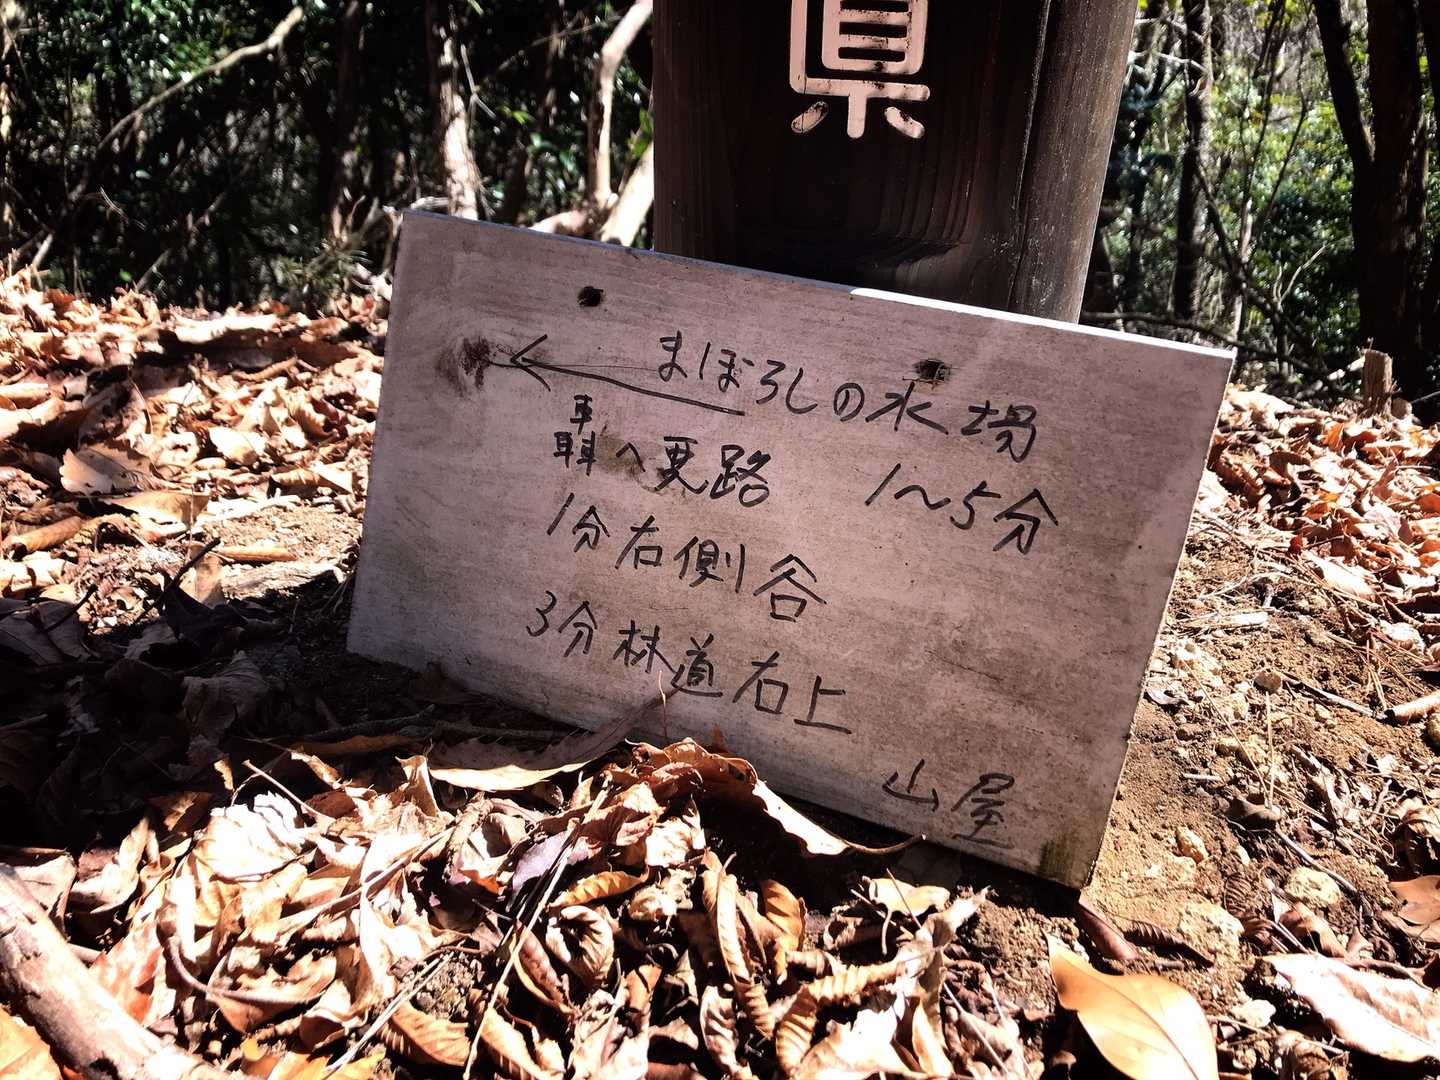 県
← まぼろしの水場
轟へ悪路 1〜5分
1分右側谷
3分林道右上
山屋